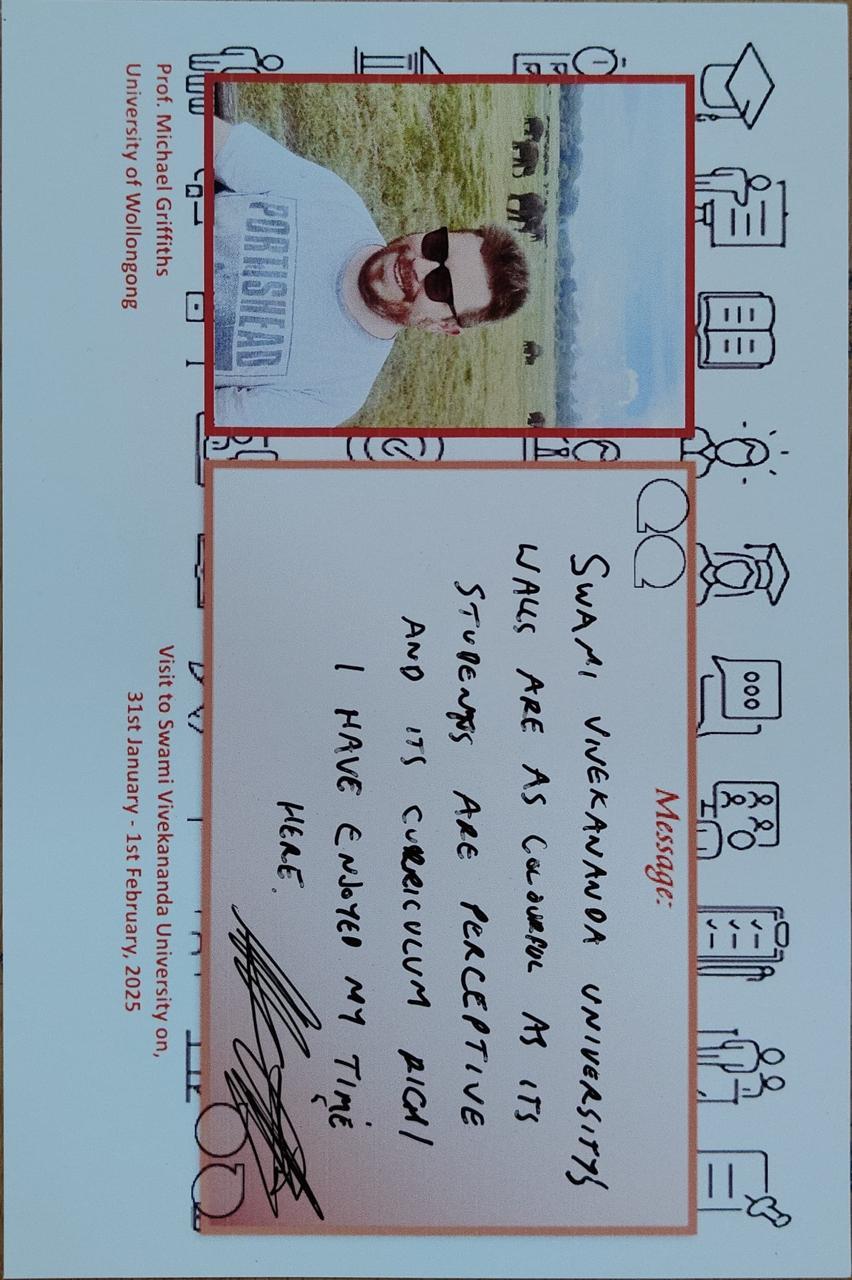 PORTISHEAD
Prof. Michael Griffiths
University of Wollongong
Message:
SWAMI VIVEKANANDA UNIVERSITY'S
WALLS ARE AS COLOURFUL AS ITS
STUDENTS ARE PERCEPTIVE
AND ITS CURRICULUM RICH!
I HAVE ENJOYED MY TIME
HERE.
Visit to Swami Vivekananda University on,
31st January - 1st February, 2025